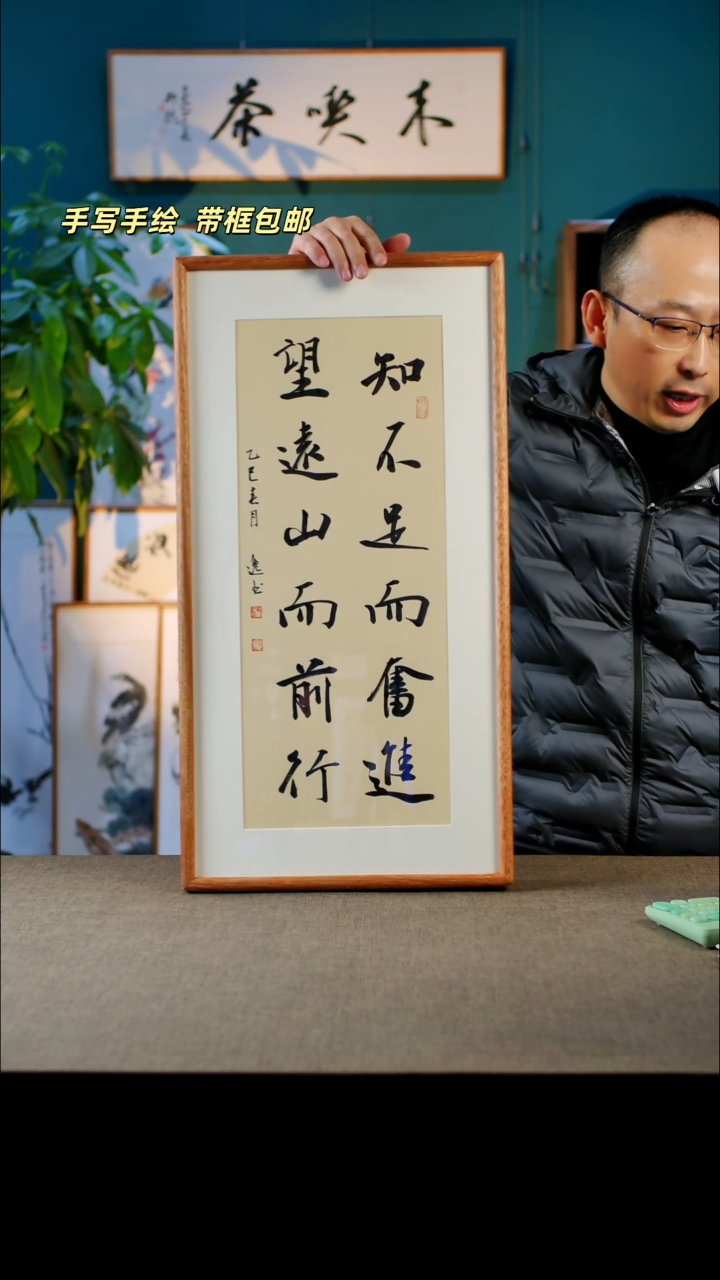 茶喫未
手写手绘 带框包邮
知不足而奮進
望遠山而前行
乙巳春月 逸书